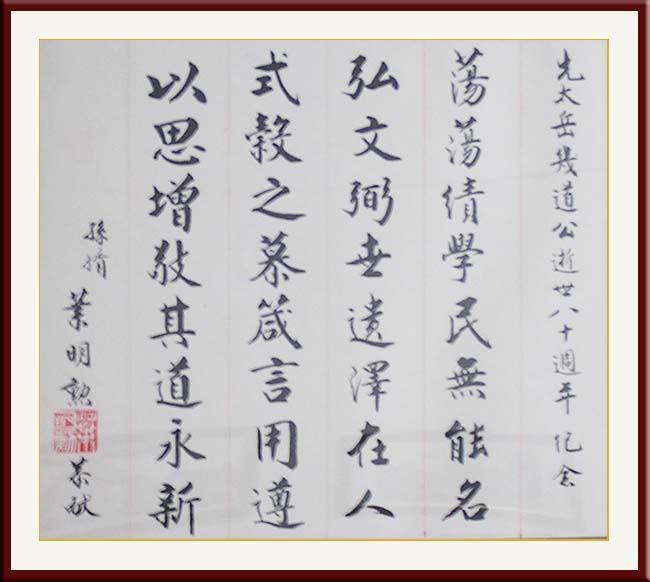 先太岳幾道公逝世八十週年纪念
蕩蕩績學民無能名
弘文弼世遺澤在人
式穀之慕箴言用遵
以思增敬其道永新
孫婿
葉明勲
恭献